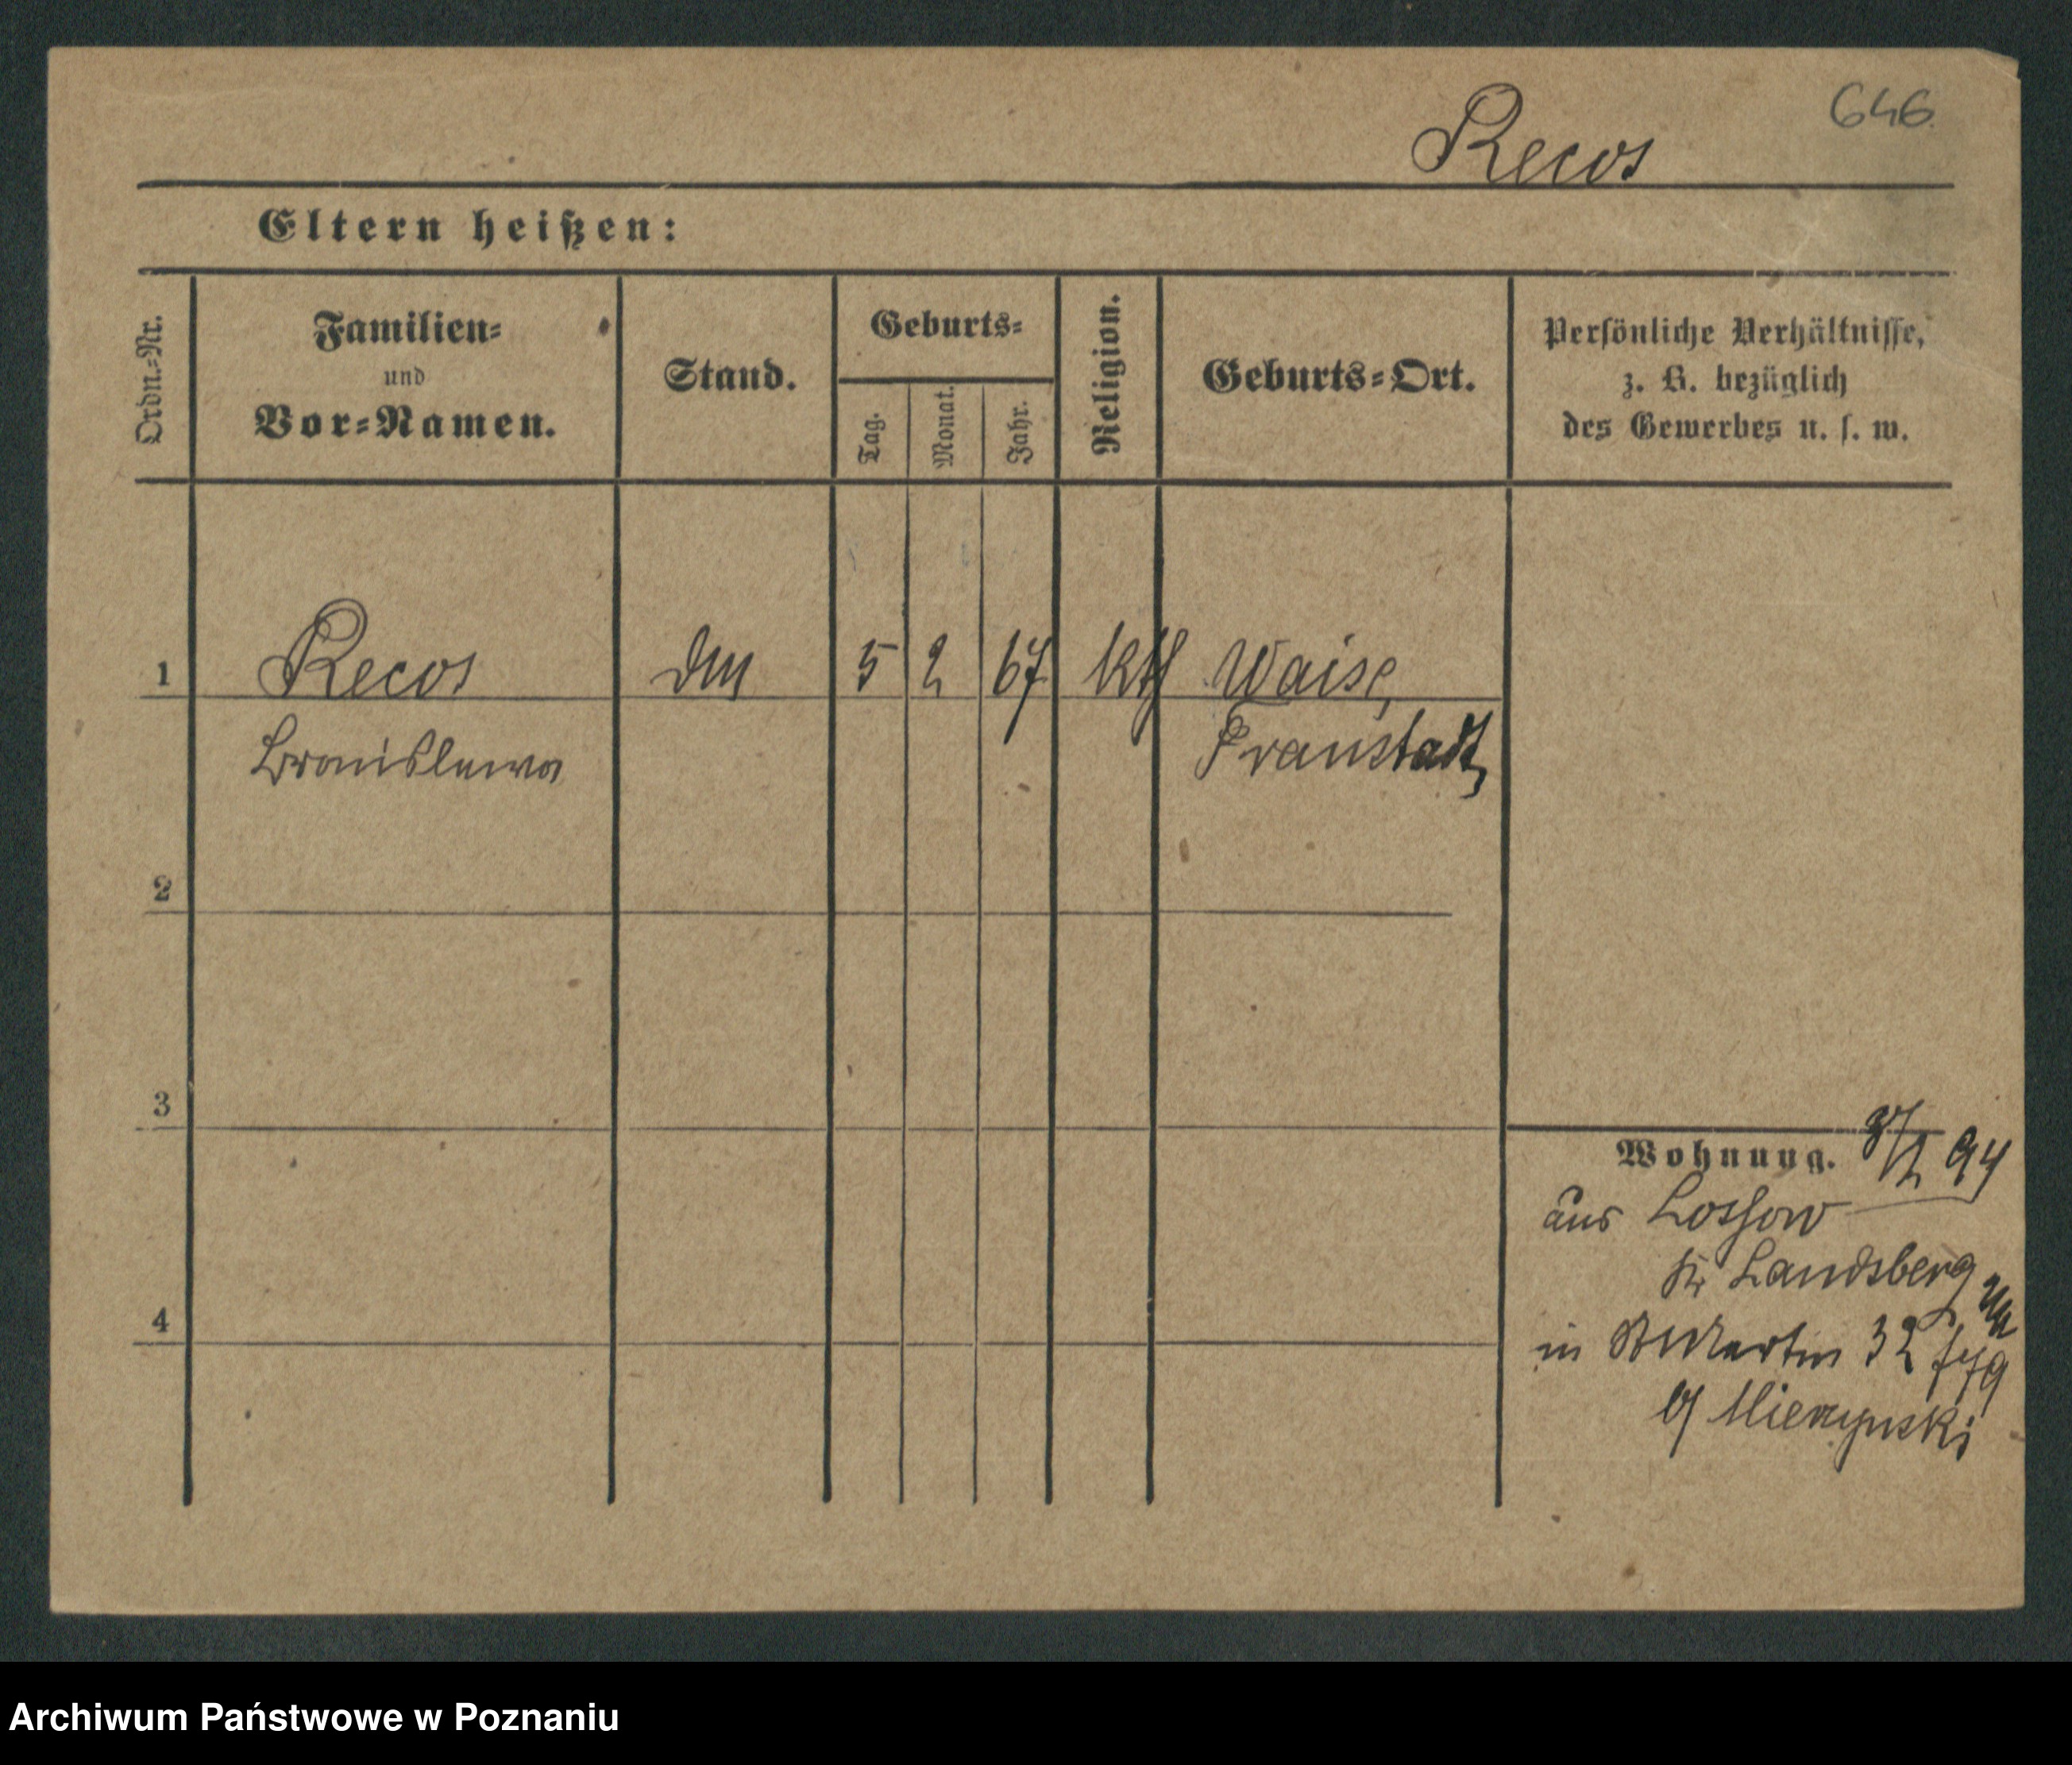 646.
Recos
Eltern heißen:
Ordn.-Nr.
Familien-
und
Vor-Namen.
Stand.
Geburts-
Tag.
Monat.
Jahr.
Religion.
Geburts-Ort.
Persönliche Verhältnisse,
z. B. bezüglich
des Gewerbes u. s. w.
1 Recos 5 2 67 kth Waise,
Bronislawa Fraustadt,
2
3
4
Wohnung. 94
aus Lossow
Kr Landsberg
in St Martin 32
b/
Archiwum Państwowe w Poznaniu